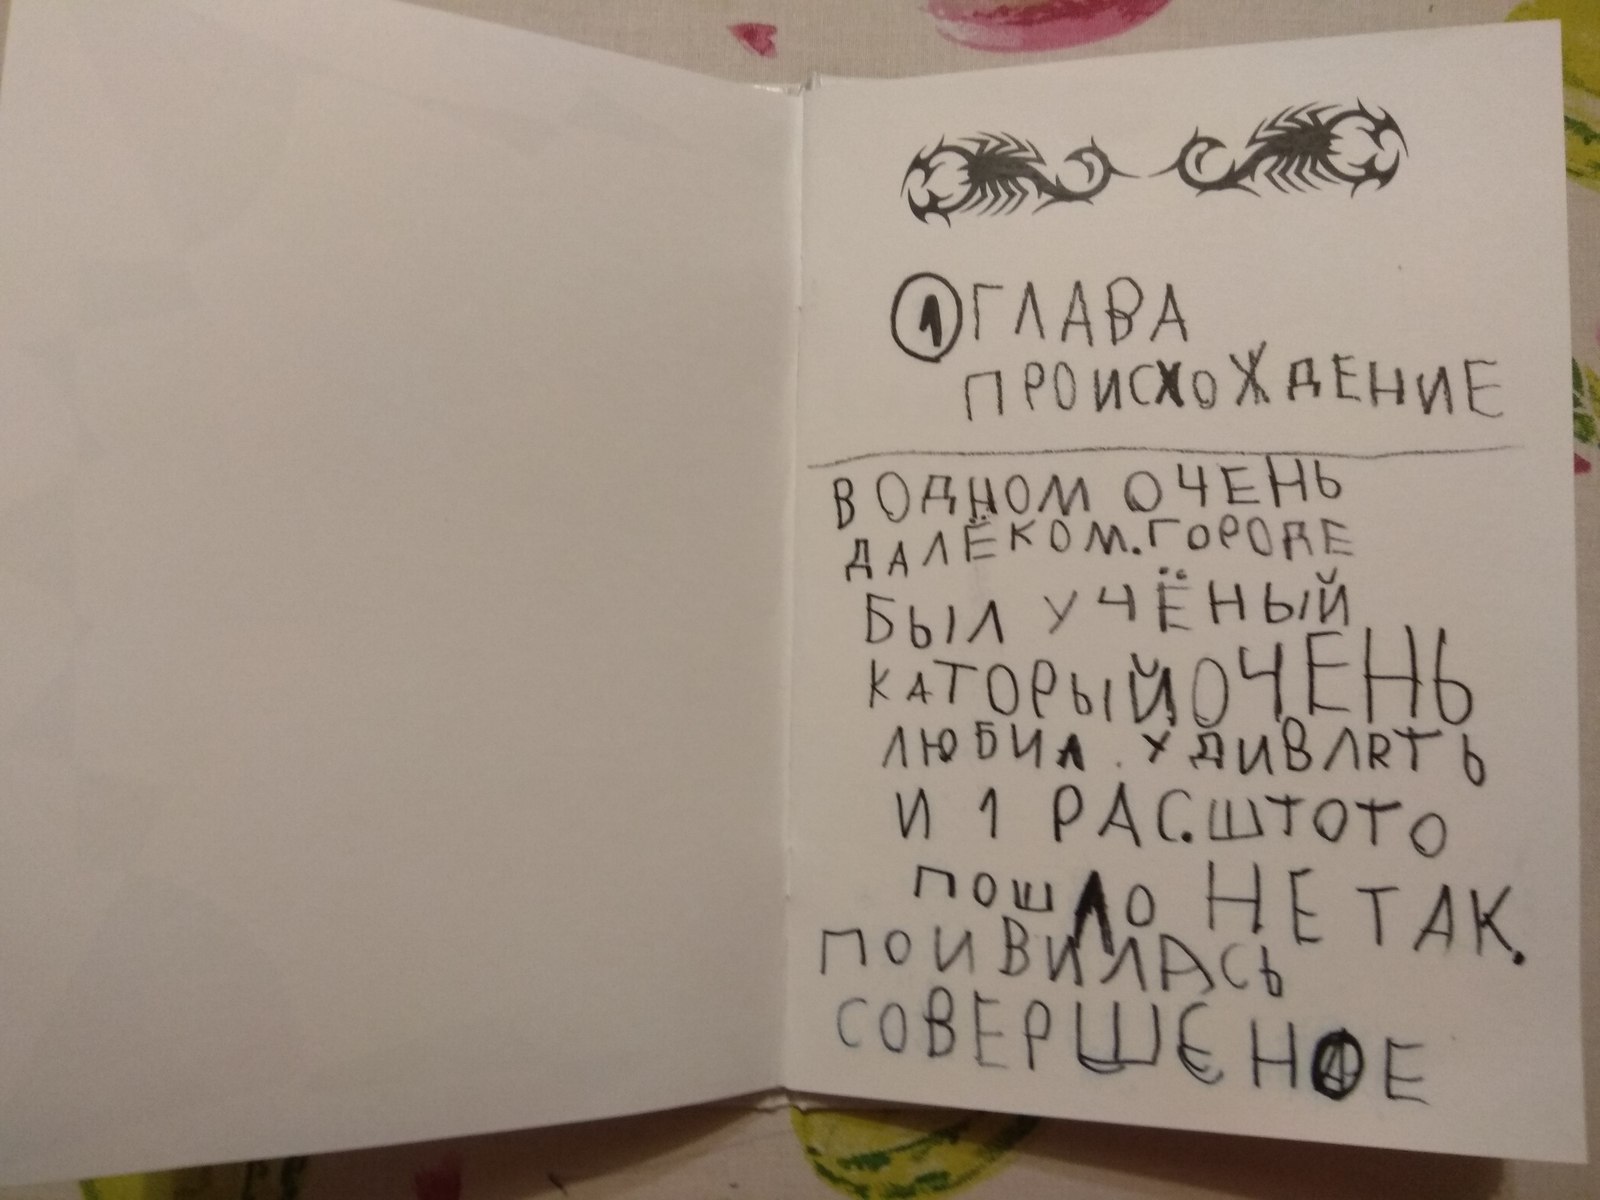 1 ГЛАВА
ПРОИСХОЖДЕНИЕ
В ОДНОМ ОЧЕНЬ
ДАЛЁКОМ. ГОРОДЕ
БЫЛ УЧЁНЫЙ
КАТОРЫЙ ОЧЕНЬ
ЛЮБИЛ. УДИВЛЯТЬ
И 1 РАС. ШТОТО
ПОШЛО НЕ ТАК.
ПОИВИЛАСЬ
СОВЕРШЕНОЕ